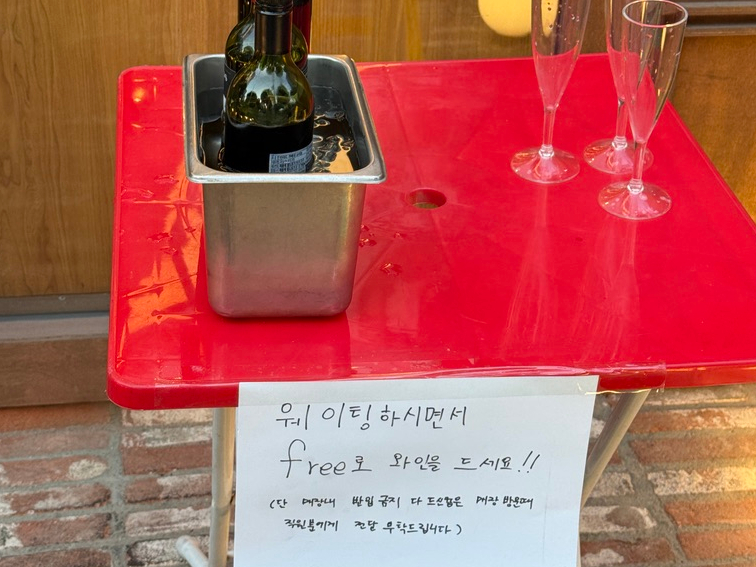 웨이팅하시면서
free로 와인을 드세요!!
(단 매장내 반입금지 다 드신잔은 매장 방문때
직원분에게 전달 부탁드립니다)